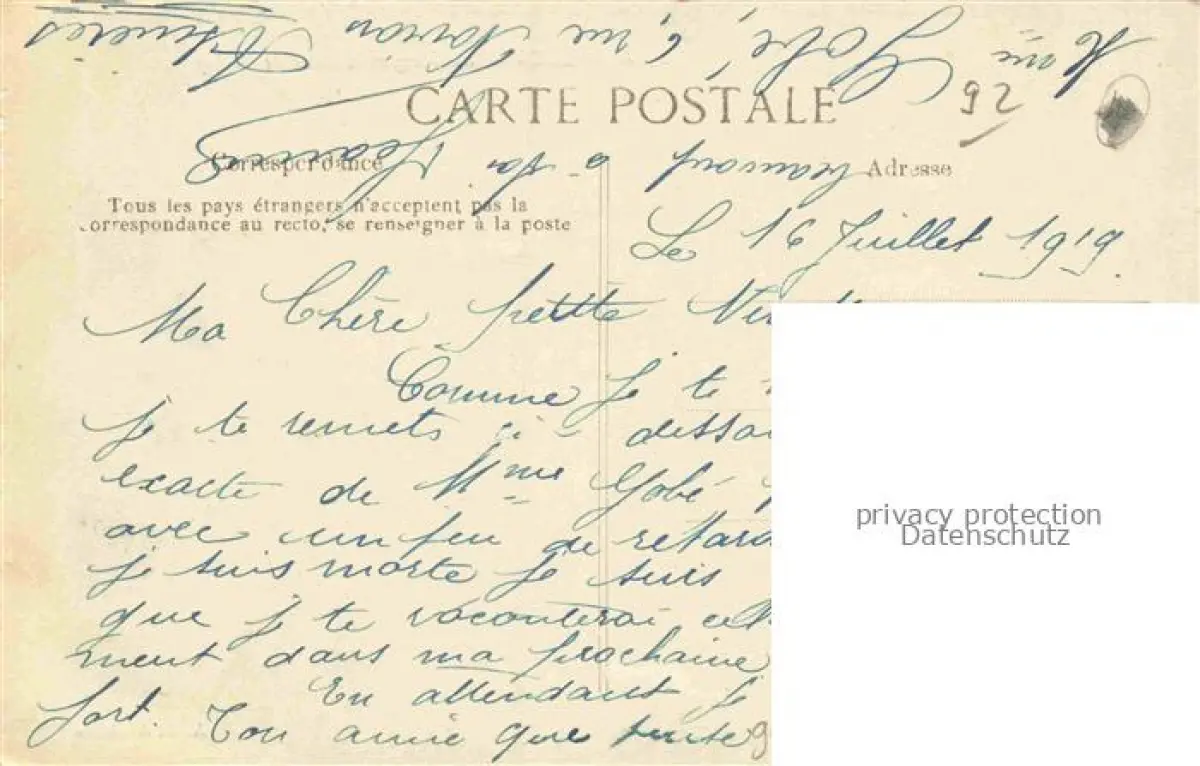 CARTE POSTALE
92
Correspondance
Adresse
Tous les pays étrangers n'acceptent pas la
correspondance au recto, se renseigner à la poste
Le 16 Juillet 1919.
Ma Chère petite
Comme je te
je te remets ci-
exacte de Mme Gobé
avec un peu de retard
je suis morte je suis
que je te raconterai
ment dans ma prochaine
En attendant je
fort. Ton amie que
privacy protection
Datenschutz
Gobé, 6, rue Asnières
beaucoup